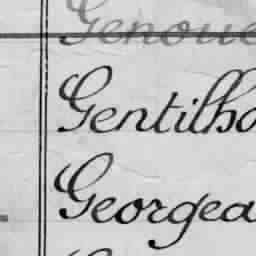 Genoue
Gentilho
Georgea